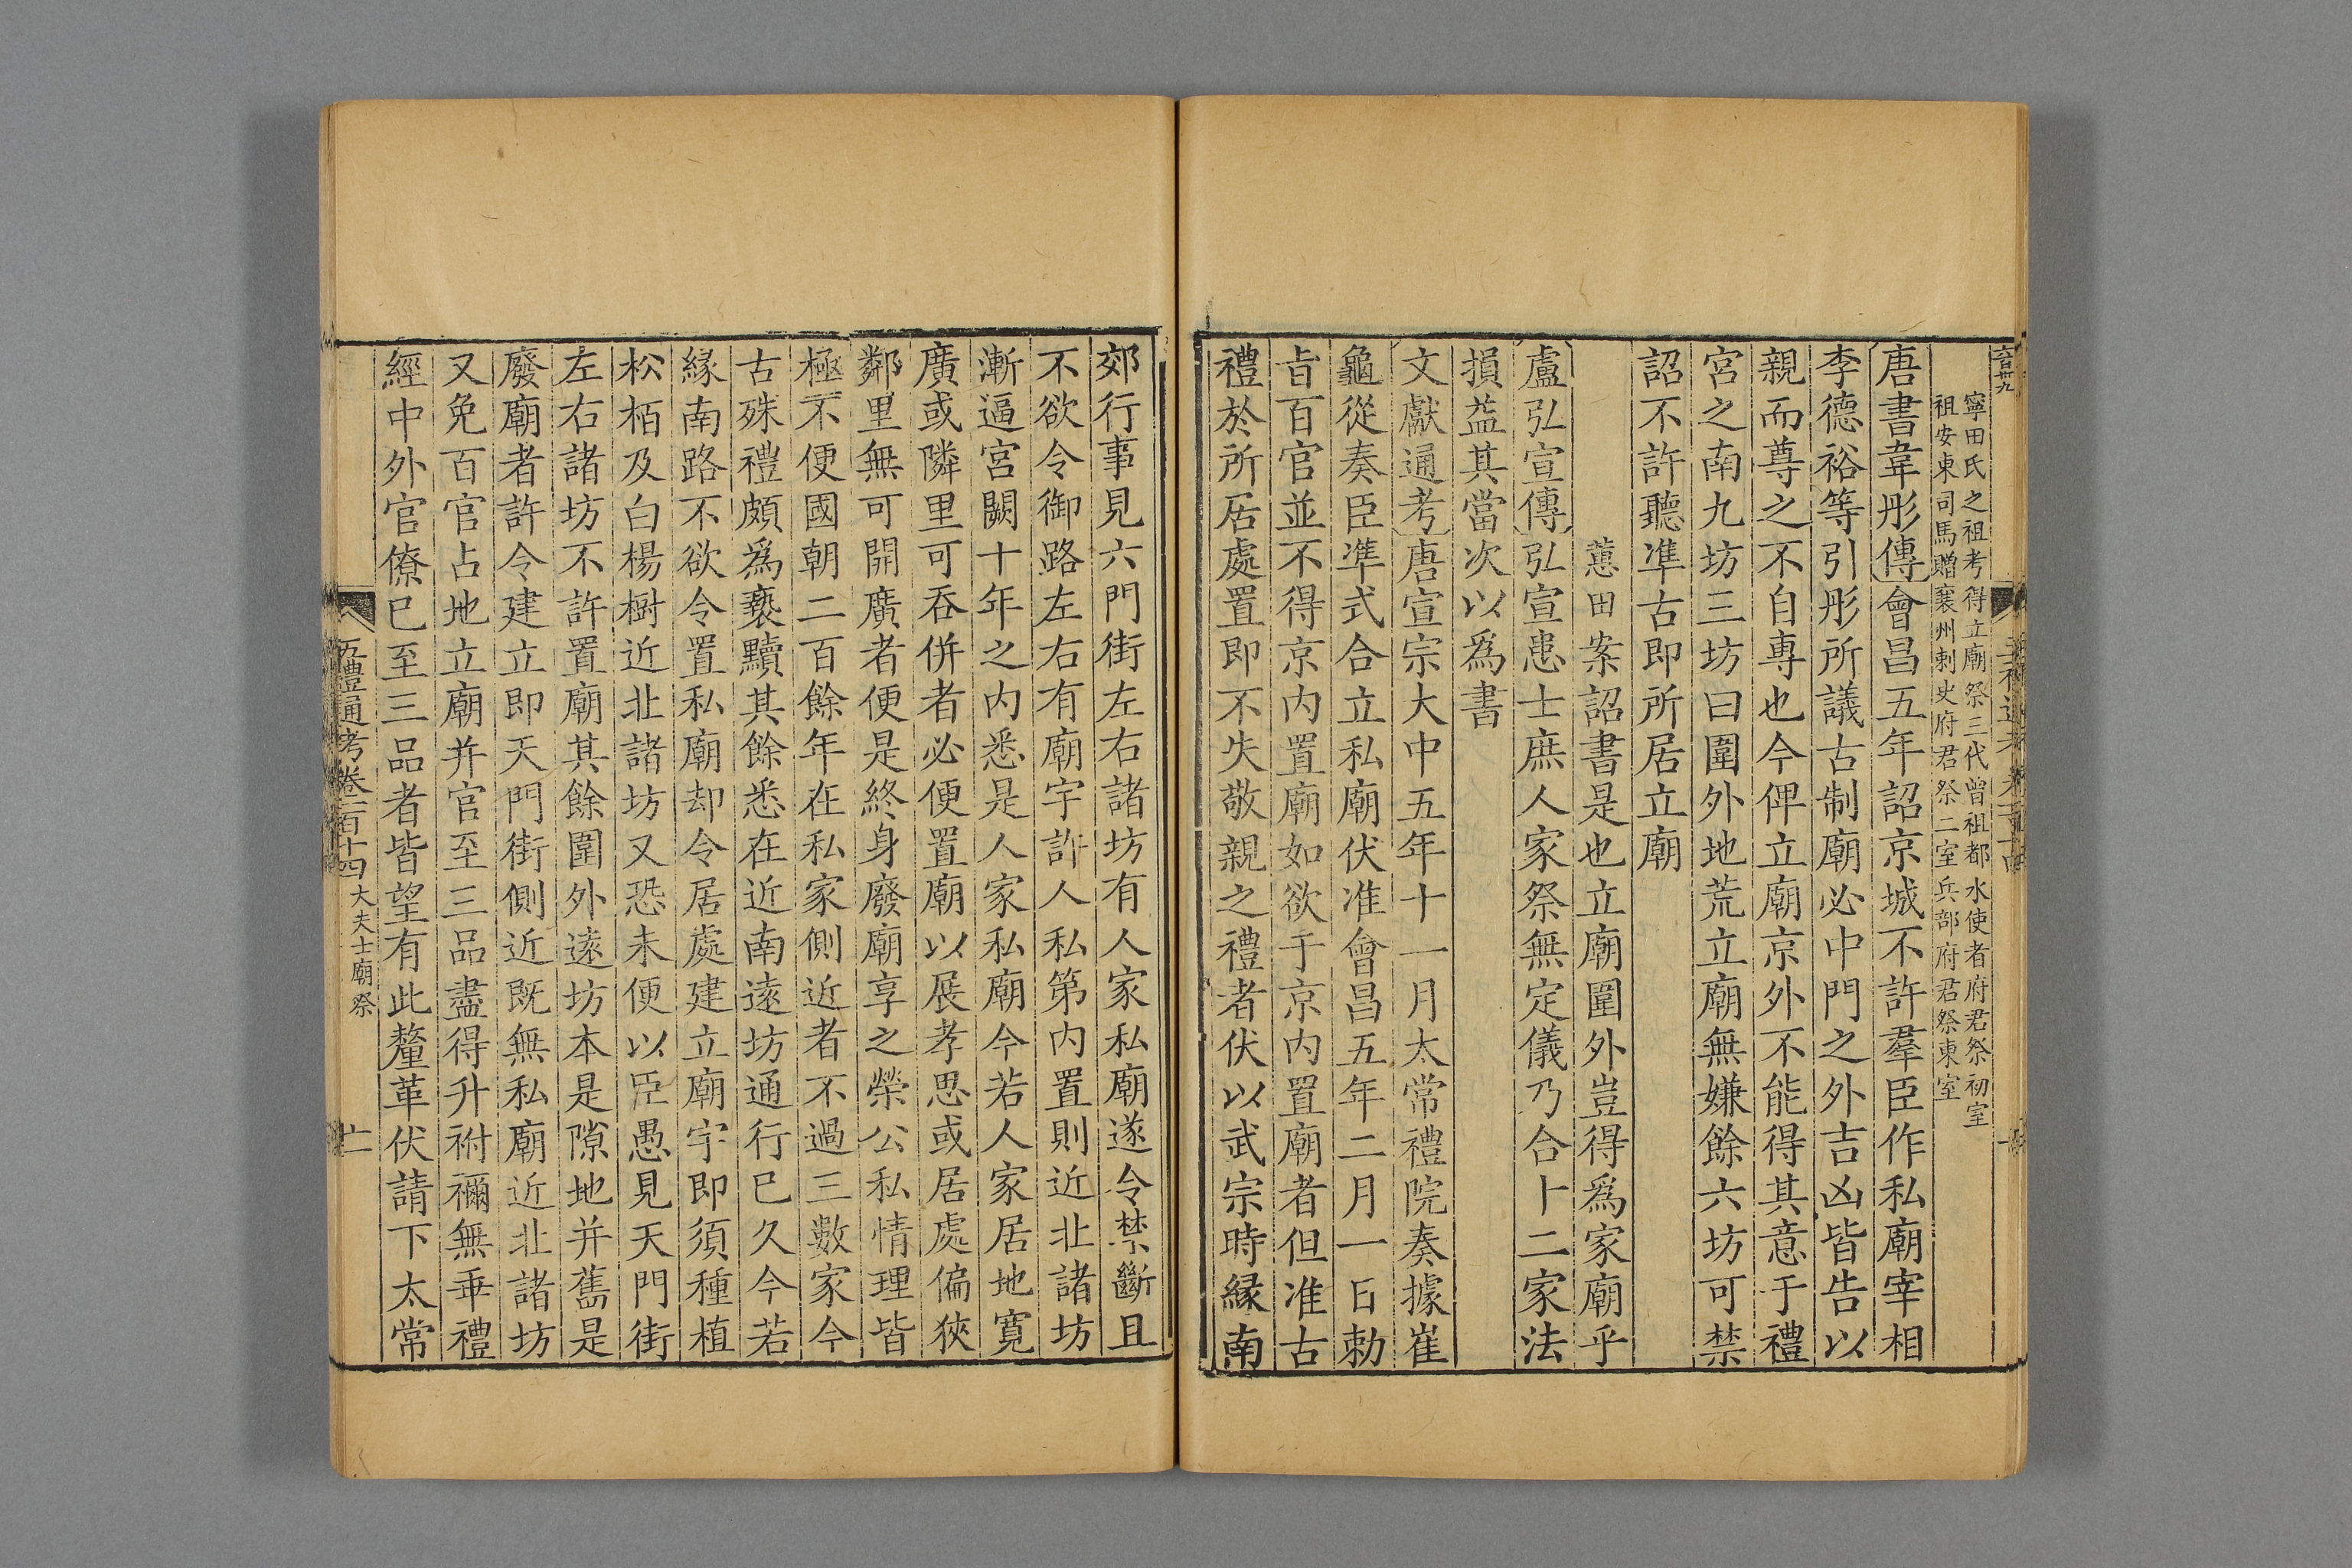 寧田氏之祖考得立廟祭三代曾祖都水使者府君祭初室
祖安東司馬贈襄州刺史府君祭二室兵部府君祭東室
唐書韋彤傳會昌五年詔京城不許羣臣作私廟宰相
李德裕等引彤所議古制廟必中門之外吉凶皆告以
親而尊之不自專也今俾立廟京外不能得其意于禮
宮之南九坊三坊曰圍外地荒立廟無嫌餘六坊可禁
詔不許聽凖古即所居立廟
蕙田案詔書是也立廟圍外豈得爲家廟乎
盧弘宣傳弘宣患士庶人家祭無定儀乃合十二家法
損益其當次以爲書
文獻通考唐宣宗大中五年十一月太常禮院奏據崔
龜從奏臣凖式合立私廟伏准會昌五年二月一日勅
旨百官並不得京内置廟如欲于京内置廟者但准古
禮於所居處置即不失敬親之禮者伏以武宗時縁南
郊行事見六門街左右諸坊有人家私廟遂令禁斷且
不欲令御路左右有廟宇許人私第内置則近北諸坊
漸逼宮闕十年之内悉是人家私廟今若人家居地寛
廣或隣里可吞併者必便置廟以展孝思或居處偏狹
鄰里無可開廣者便是終身廢廟享之榮公私情理皆
極不便國朝二百餘年在私家側近者不過三數家今
古殊禮頗爲褻黷其餘悉在近南遠坊通行已久今若
縁南路不欲令置私廟却令居處建立廟宇即須種植
松栢及白楊樹近北諸坊又恐未便以臣愚見天門街
左右諸坊不許置廟其餘圍外遠坊本是隙地并舊是
廢廟者許令建立即天門街側近既無私廟近北諸坊
又免百官占地立廟并官至三品盡得升祔禰無乖禮
經中外官僚已至三品者皆望有此釐革伏請下太常
五禮通考卷一百十四 大夫士廟祭 十一